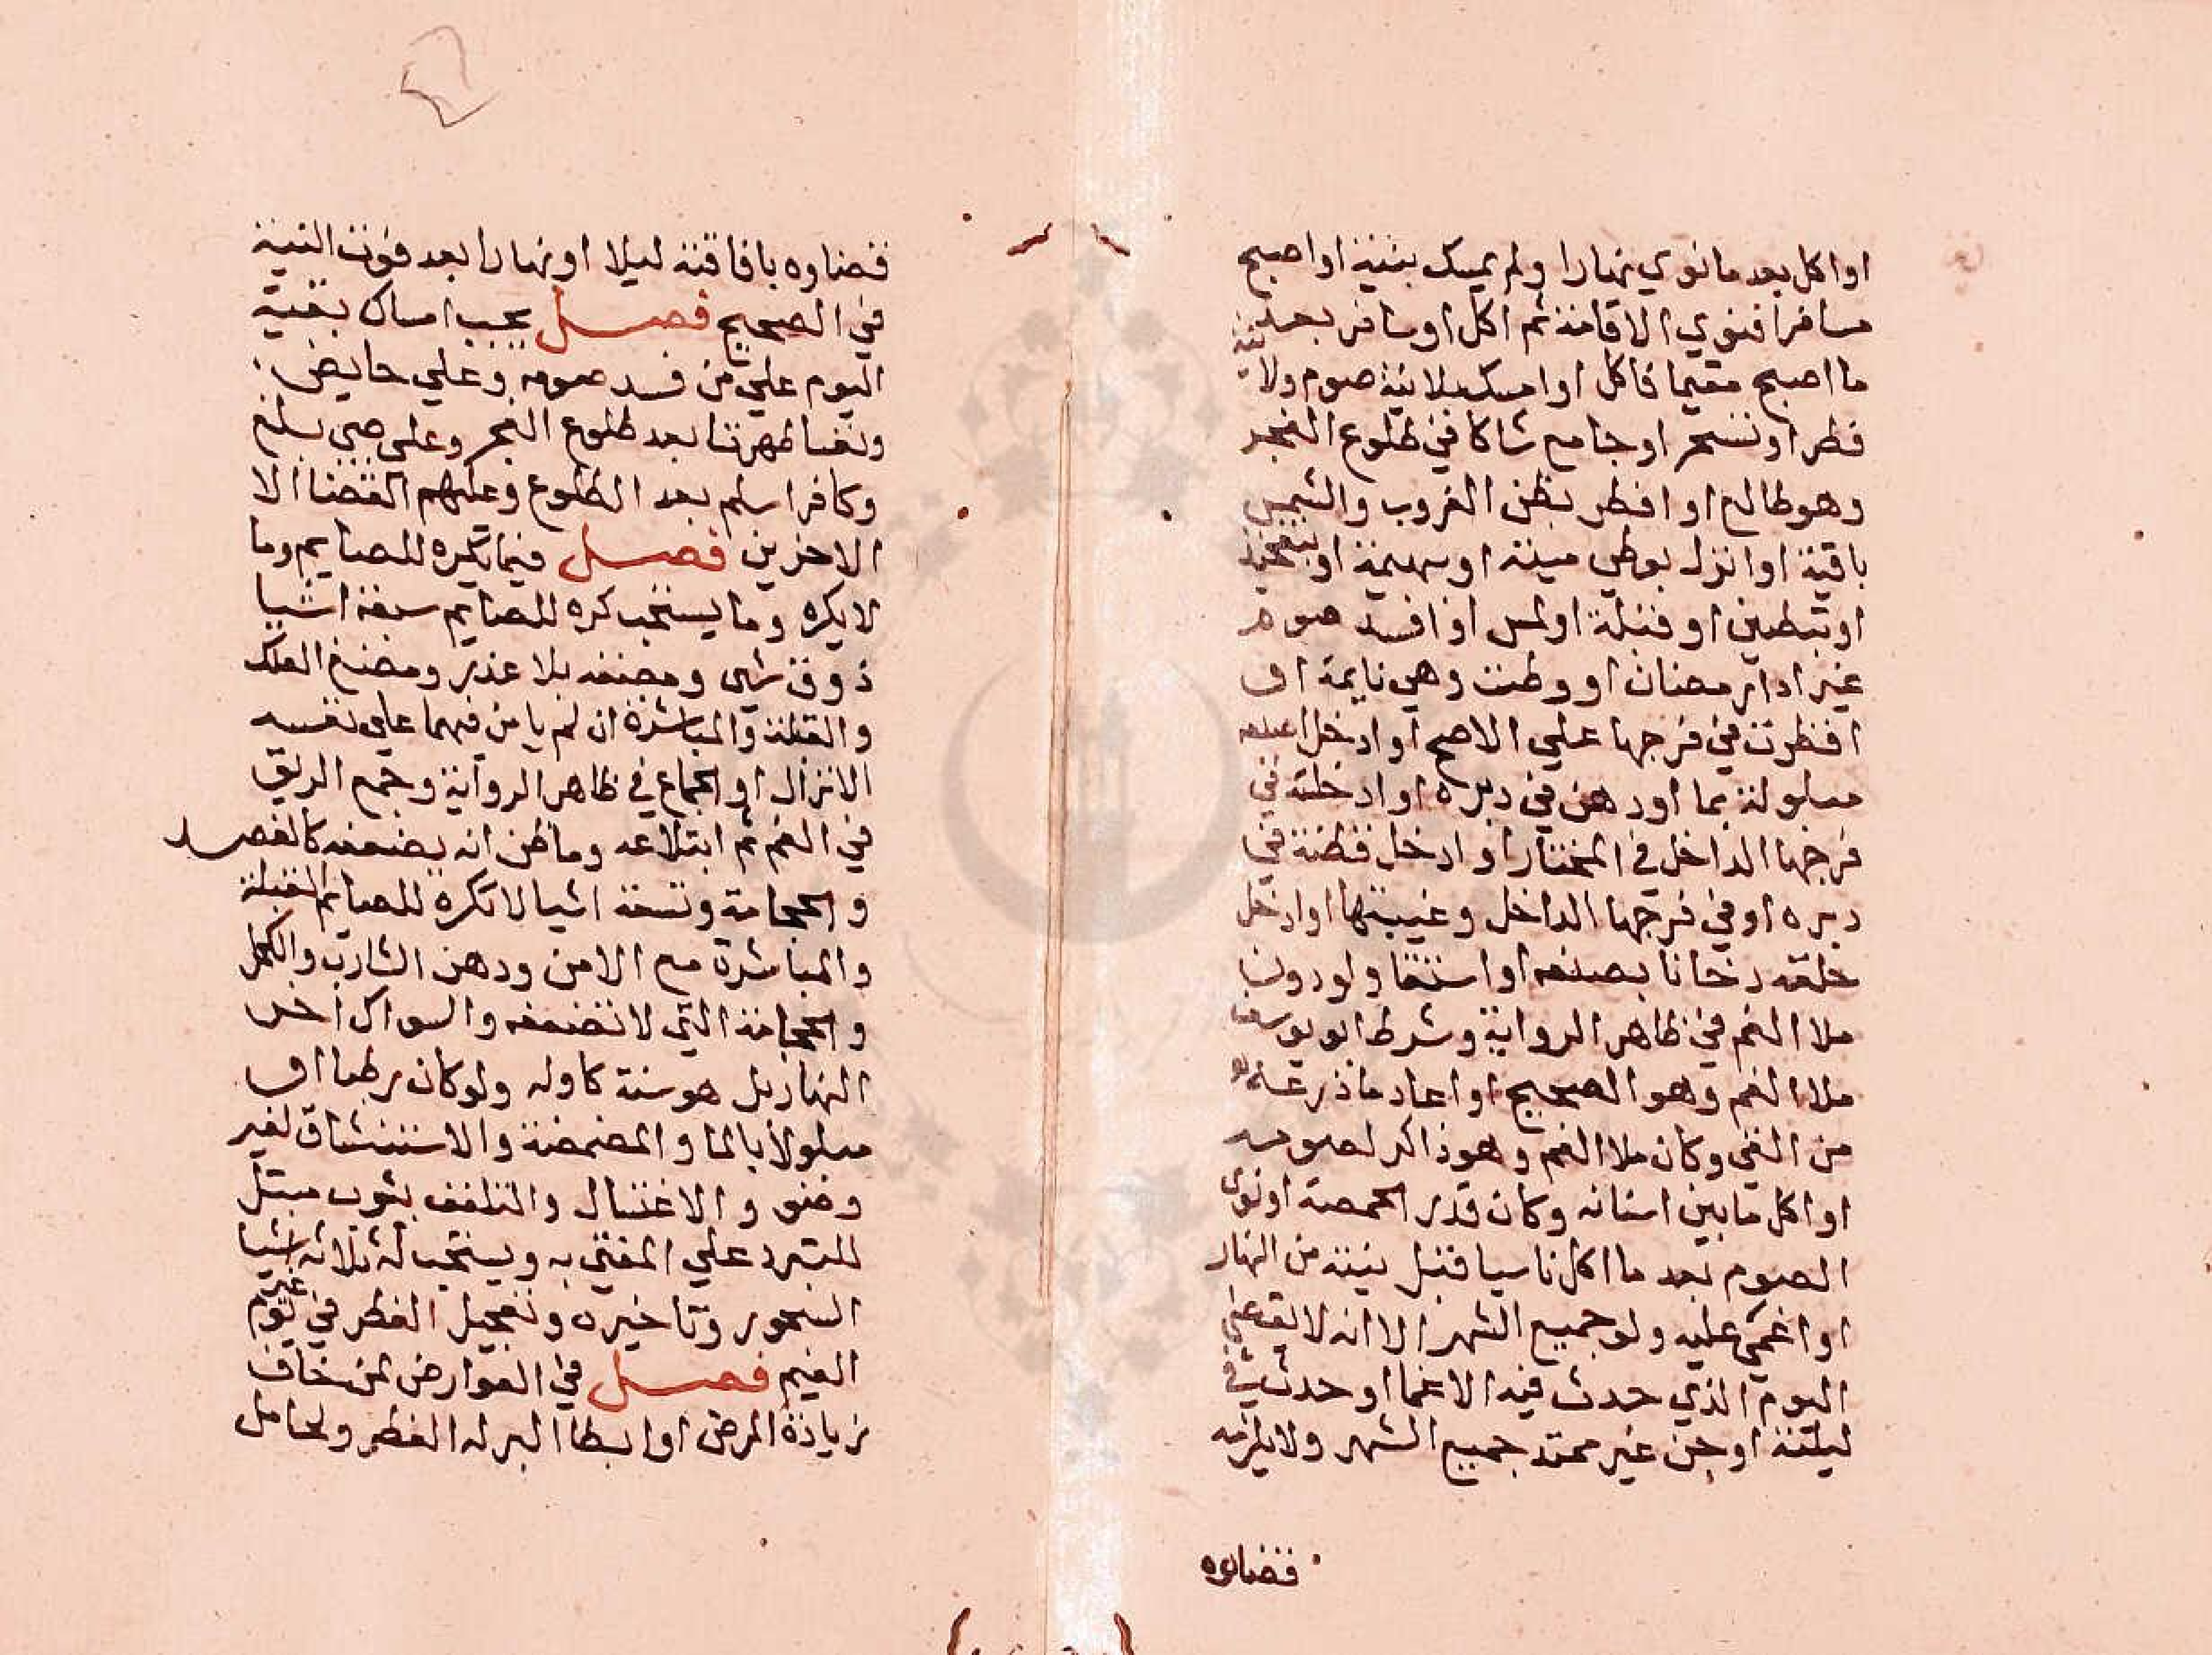 او اكل بعد ما نوي نهارا ولم يبيت بنيته او اصبح
مسافرا فنوي الاقامة ثم اكل او سافر بعد
ما اصبح مقيما فاكل او امسك بلا نية صوم ولا نية
فطر او تسحر او جامع شاكا في طلوع الفجر
وهو طالع او افطر بظن الغروب والشمس
باقية او انزل بوطي ميتة او بهيمة او بتفخيذ
او تبطين او قبلة او لمس او افسد صوم
غير ادا رمضان او وطئت وهي نايمة او
اقطرت في فرجها علي الاصح او ادخل اصبعه
مبلولة بما او دهن في دبره او ادخلته في
فرجها الداخل في المختار او ادخل قطنة في
دبره او في فرجها الداخل وغيبتها او ادخل
حلقه دخانا بصنعه او استقا ولو دون
ملا الفم في ظاهر الرواية وشرط ابو يوسف
ملا الفم وهو الصحيح او اعاد ما ذرعه
من القي وكان ملا الفم وهو ذاكر لصومه
او اكل ما بين اسنانه وكان قدر الحمصة او نوي
الصوم بعد ما اكل ناسيا قبل نيته من النهار
او اغمي عليه ولو جميع الشهر الا انه لا يقضي
اليوم الذي حدث فيه الاغما او حدث في
ليلته او جن غير ممتد جميع الشهر ولا يلزمه
قضاوه
قضاوه بافاقته ليلا او نهارا بعد فوت النية
في الصحيح فصل يجب امساك بقية
اليوم علي من فسد صومه وعلي حايض
ونفسا طهرتا بعد طلوع الفجر وعلي صبي بلغ
وكافر اسلم بعد الطلوع وعليهم القضا الا
الاخرين فصل فيما يكره للصايم وما
لا يكره وما يستحب كره للصايم سبعة اشيا
ذوق شي ومضغه بلا عذر ومضغ العلك
والقبلة والمباشرة ان لم يامن فيهما علي نفسه
الانزال او الجماع في ظاهر الرواية وجمع الريق
في الفم ثم ابتلاعه وما ظن انه يضعفه كالفصد
والحجامة وتسعة اشيا لا تكره للصايم القبلة
والمباشرة مع الامن ودهن الشارب والكحل
والحجامة التي لا تضعفه والسواك اخر
النهار بل هو سنة كاوله ولو كان رطبا او
مبلولا بالما والمضمضة والاستنشاق لغير
وضو والاغتسال والتلفف بثوب مبتل
للتبرد علي المفتي به ويستحب له ثلاثة اشيا
السحور وتاخيره وتعجيل الفطر في غير يوم
الغيم فصل في العوارض لمن خاف
زيادة المرض او ابطا البر له الفطر ولحامل